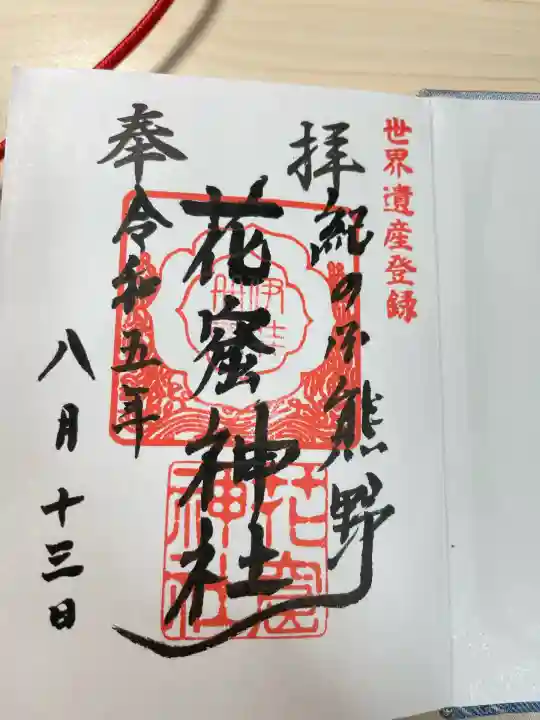 世界遺産登録
拝
紀の国熊野
花窟神社
奉
令和五年
八月十三日
花窟神社